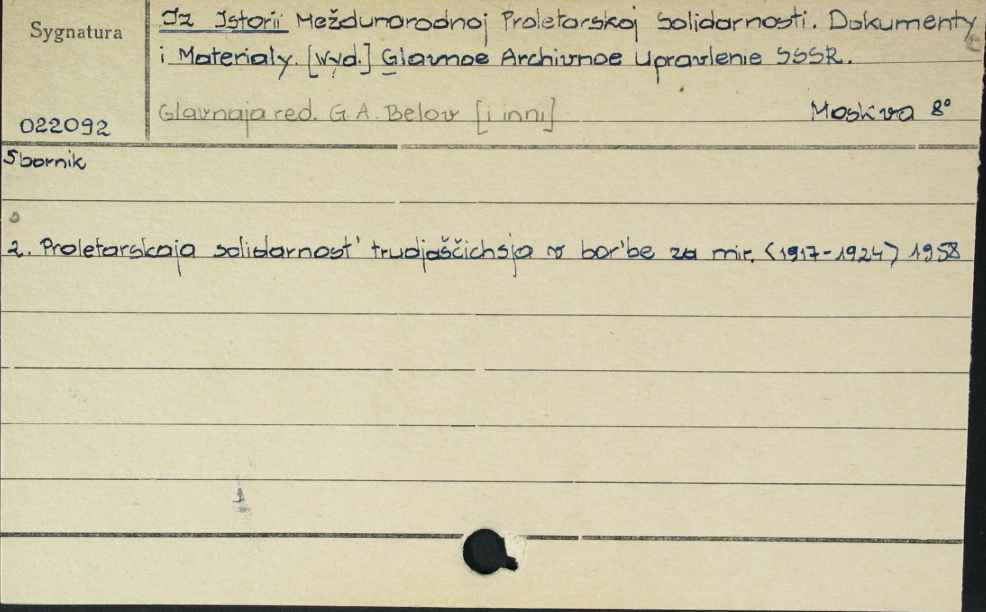 Sygnatura
Iz Istorii Meždunarodnoj Proletarskoj Solidarnosti. Dokumenty
i Materialy. [Wyd.] Glavnoe Archivnoe Upravlenie SSSR.
Glavnaja red. G. A. Belov [i inni]
Moskva 8°
022092
Sbornik
2. Proletarskaja solidarnost' trudjaščichsja v bor'be za mir. <1917-1924> 1958